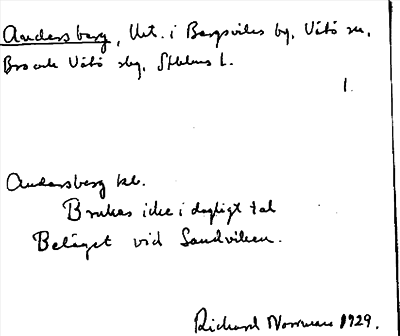 Andersberg, Utt. i Bergsvikes by, Vätö sn,
Bro och Vätö slg, Sthlms l.
1.
Andersberg kb.
Brukas icke i dagligt tal
Beläget vid Sandviken.
Richard Norrman 1929.